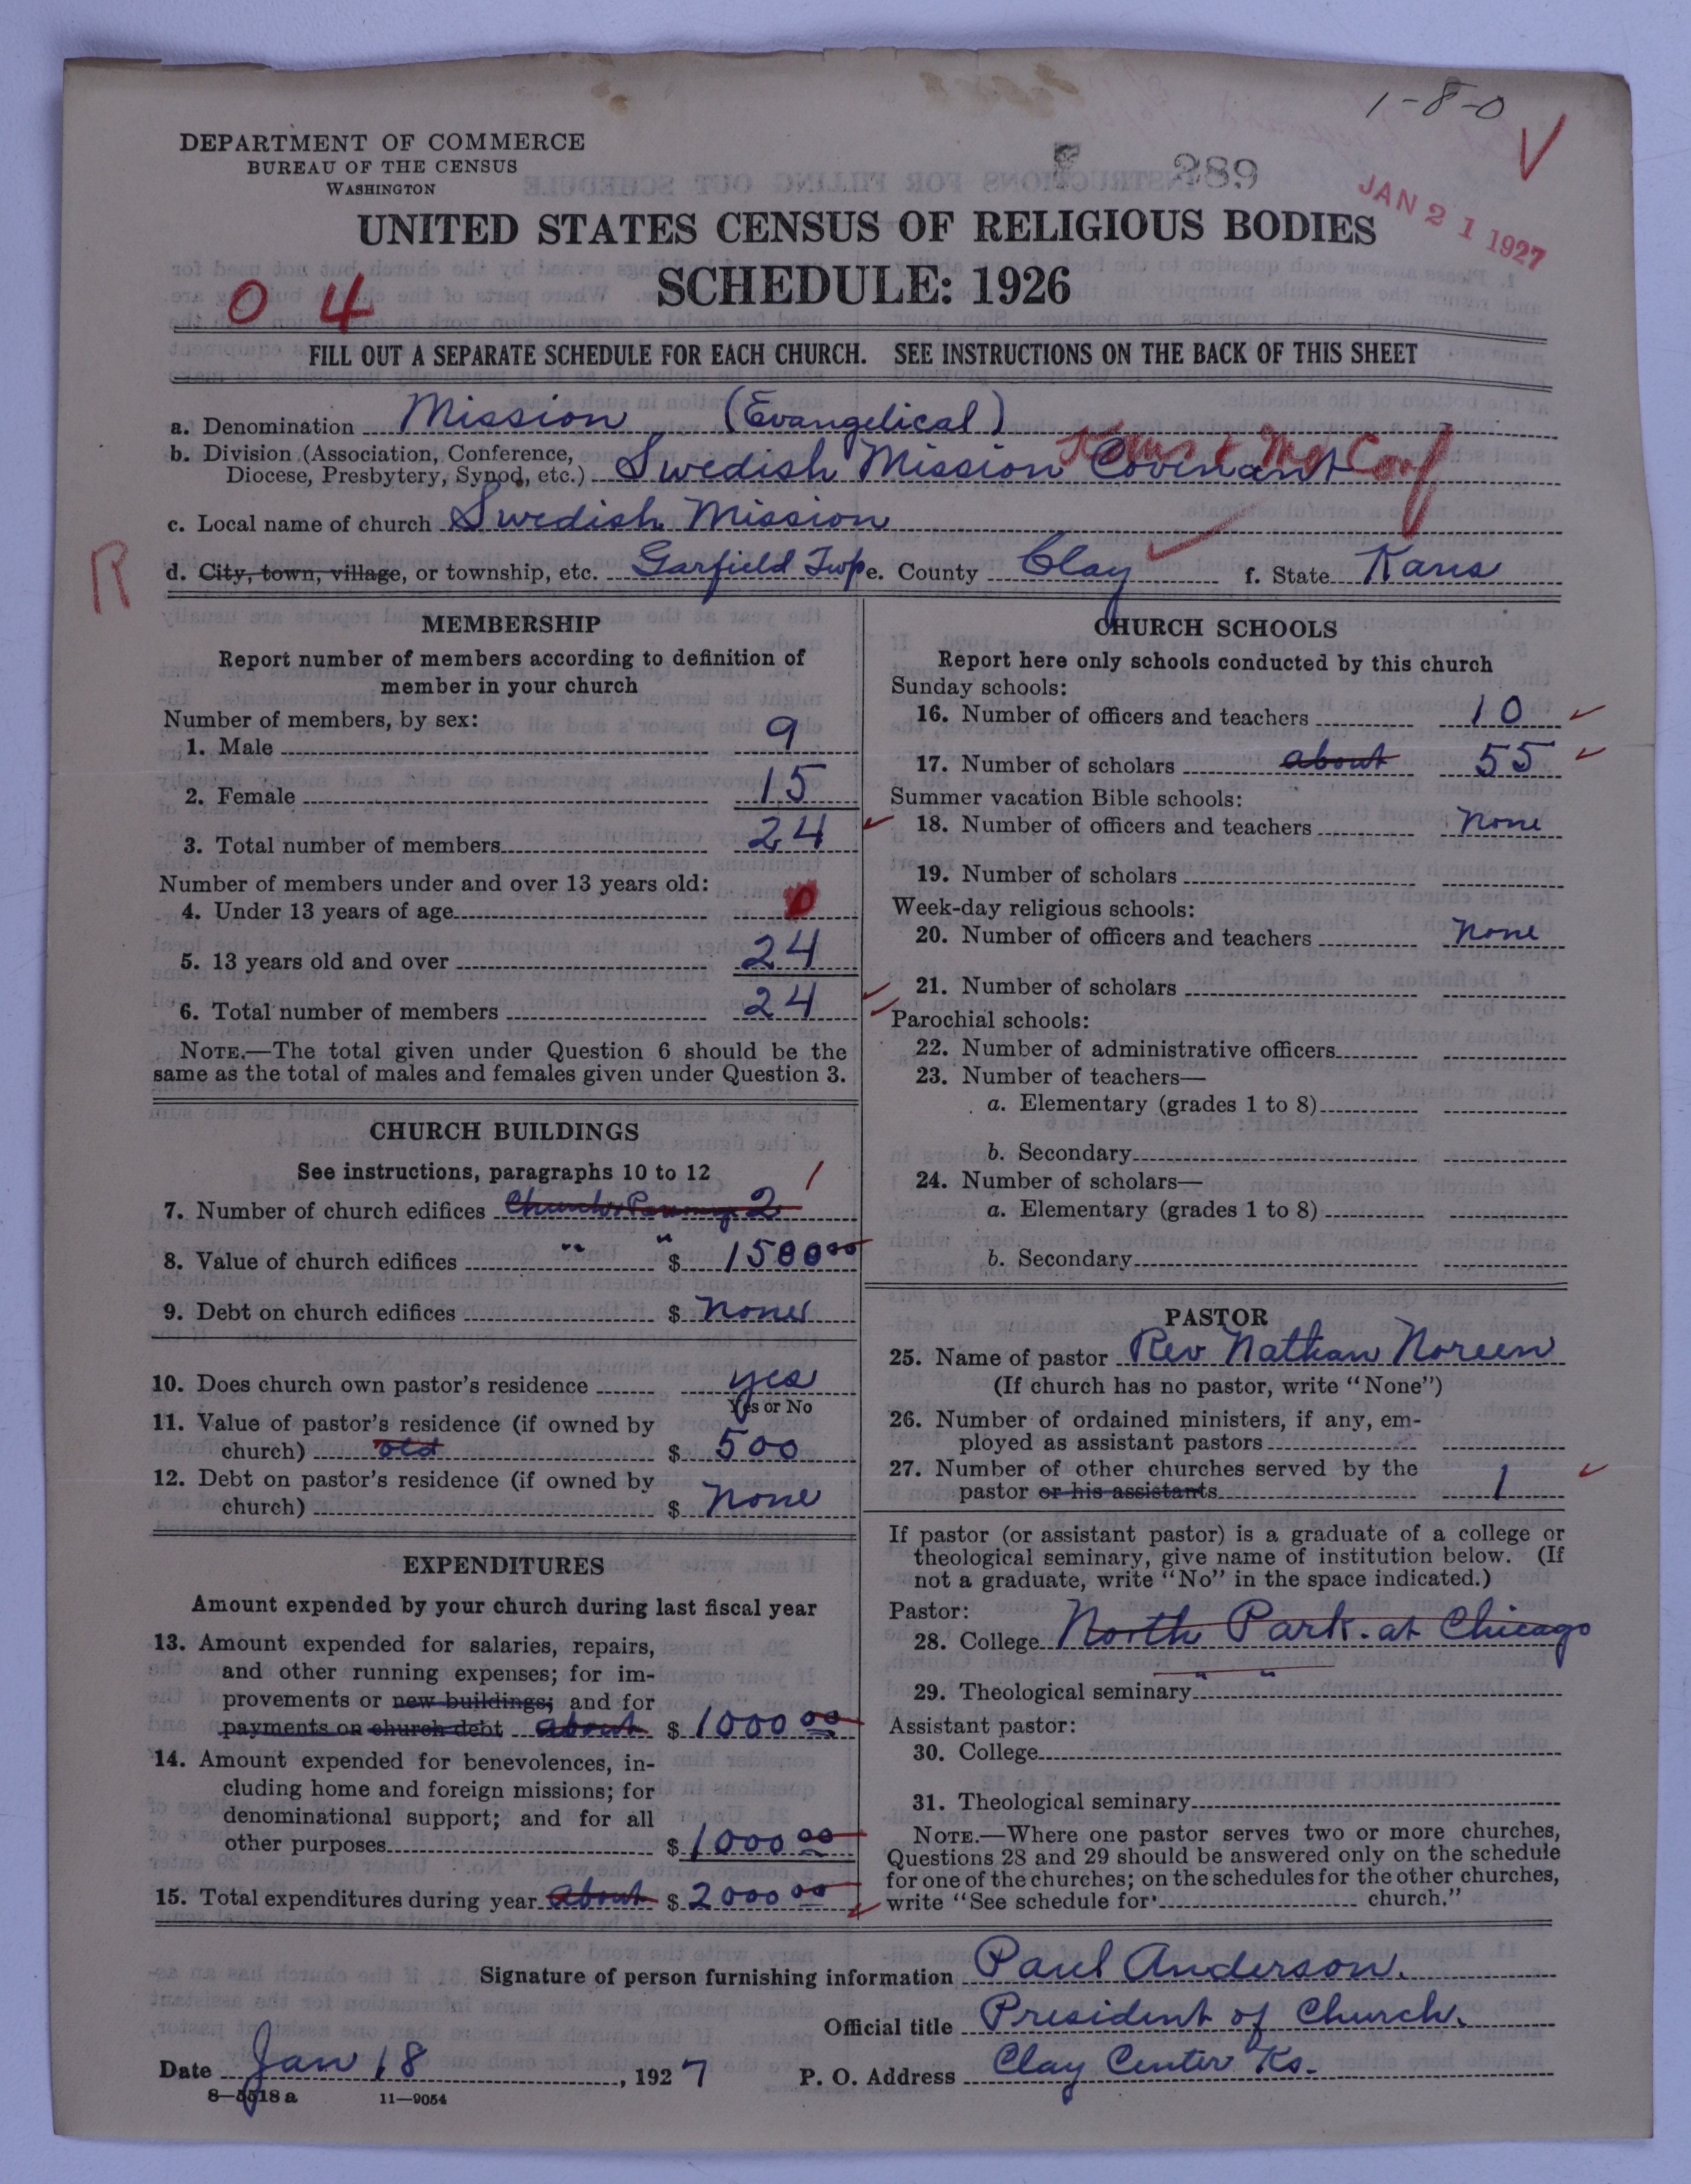 1-8-0
DEPARTMENT OF COMMERCE
BUREAU OF THE CENSUS
WASHINGTON
289
JAN 21 1927
UNITED STATES CENSUS OF RELIGIOUS BODIES
SCHEDULE: 1926
0 4
FILL OUT A SEPARATE SCHEDULE FOR EACH CHURCH. SEE INSTRUCTIONS ON THE BACK OF THIS SHEET
a. Denomination Mission (Evangelical)
b. Division (Association, Conference, Diocese, Presbytery, Synod, etc.) Swedish Mission Covenant
Kans & Mo Conf
c. Local name of church Swedish Mission
R
d. City, town, village, or township, etc. Garfield Twp e. County Clay f. State Kans
MEMBERSHIP
Report number of members according to definition of
member in your church
Number of members, by sex:
1. Male 9
2. Female 15
3. Total number of members 24
Number of members under and over 13 years old:
4. Under 13 years of age 0
5. 13 years old and over 24
6. Total number of members 24
NOTE.—The total given under Question 6 should be the
same as the total of males and females given under Question 3.
CHURCH BUILDINGS
See instructions, paragraphs 10 to 12
7. Number of church edifices Church & Parsonage 2 1
8. Value of church edifices " " $ 1500 00
9. Debt on church edifices $ none
10. Does church own pastor's residence yes
Yes or No
11. Value of pastor's residence (if owned by
church) old $ 500
12. Debt on pastor's residence (if owned by
church) $ none
EXPENDITURES
Amount expended by your church during last fiscal year
13. Amount expended for salaries, repairs,
and other running expenses; for im-
provements or new buildings; and for
payments on church debt about $ 1000 00
14. Amount expended for benevolences, in-
cluding home and foreign missions; for
denominational support; and for all
other purposes $ 1000 00
15. Total expenditures during year about $ 2000 00
CHURCH SCHOOLS
Report here only schools conducted by this church
Sunday schools:
16. Number of officers and teachers 10
17. Number of scholars about 55
Summer vacation Bible schools:
18. Number of officers and teachers none
19. Number of scholars
Week-day religious schools:
20. Number of officers and teachers none
21. Number of scholars
Parochial schools:
22. Number of administrative officers
23. Number of teachers—
a. Elementary (grades 1 to 8)
b. Secondary
24. Number of scholars—
a. Elementary (grades 1 to 8)
b. Secondary
PASTOR
25. Name of pastor Rev Nathan Noreen
(If church has no pastor, write "None")
26. Number of ordained ministers, if any, em-
ployed as assistant pastors
27. Number of other churches served by the
pastor or his assistants 1
If pastor (or assistant pastor) is a graduate of a college or
theological seminary, give name of institution below. (If
not a graduate, write "No" in the space indicated.)
Pastor:
28. College North Park. at Chicago
29. Theological seminary " "
Assistant pastor:
30. College
31. Theological seminary
NOTE.—Where one pastor serves two or more churches,
Questions 28 and 29 should be answered only on the schedule
for one of the churches; on the schedules for the other churches,
write "See schedule for church."
Signature of person furnishing information Paul Anderson.
Official title President of Church.
Date Jan 18, 1927 P. O. Address Clay Center Ks.
8—5518 a 11—9054